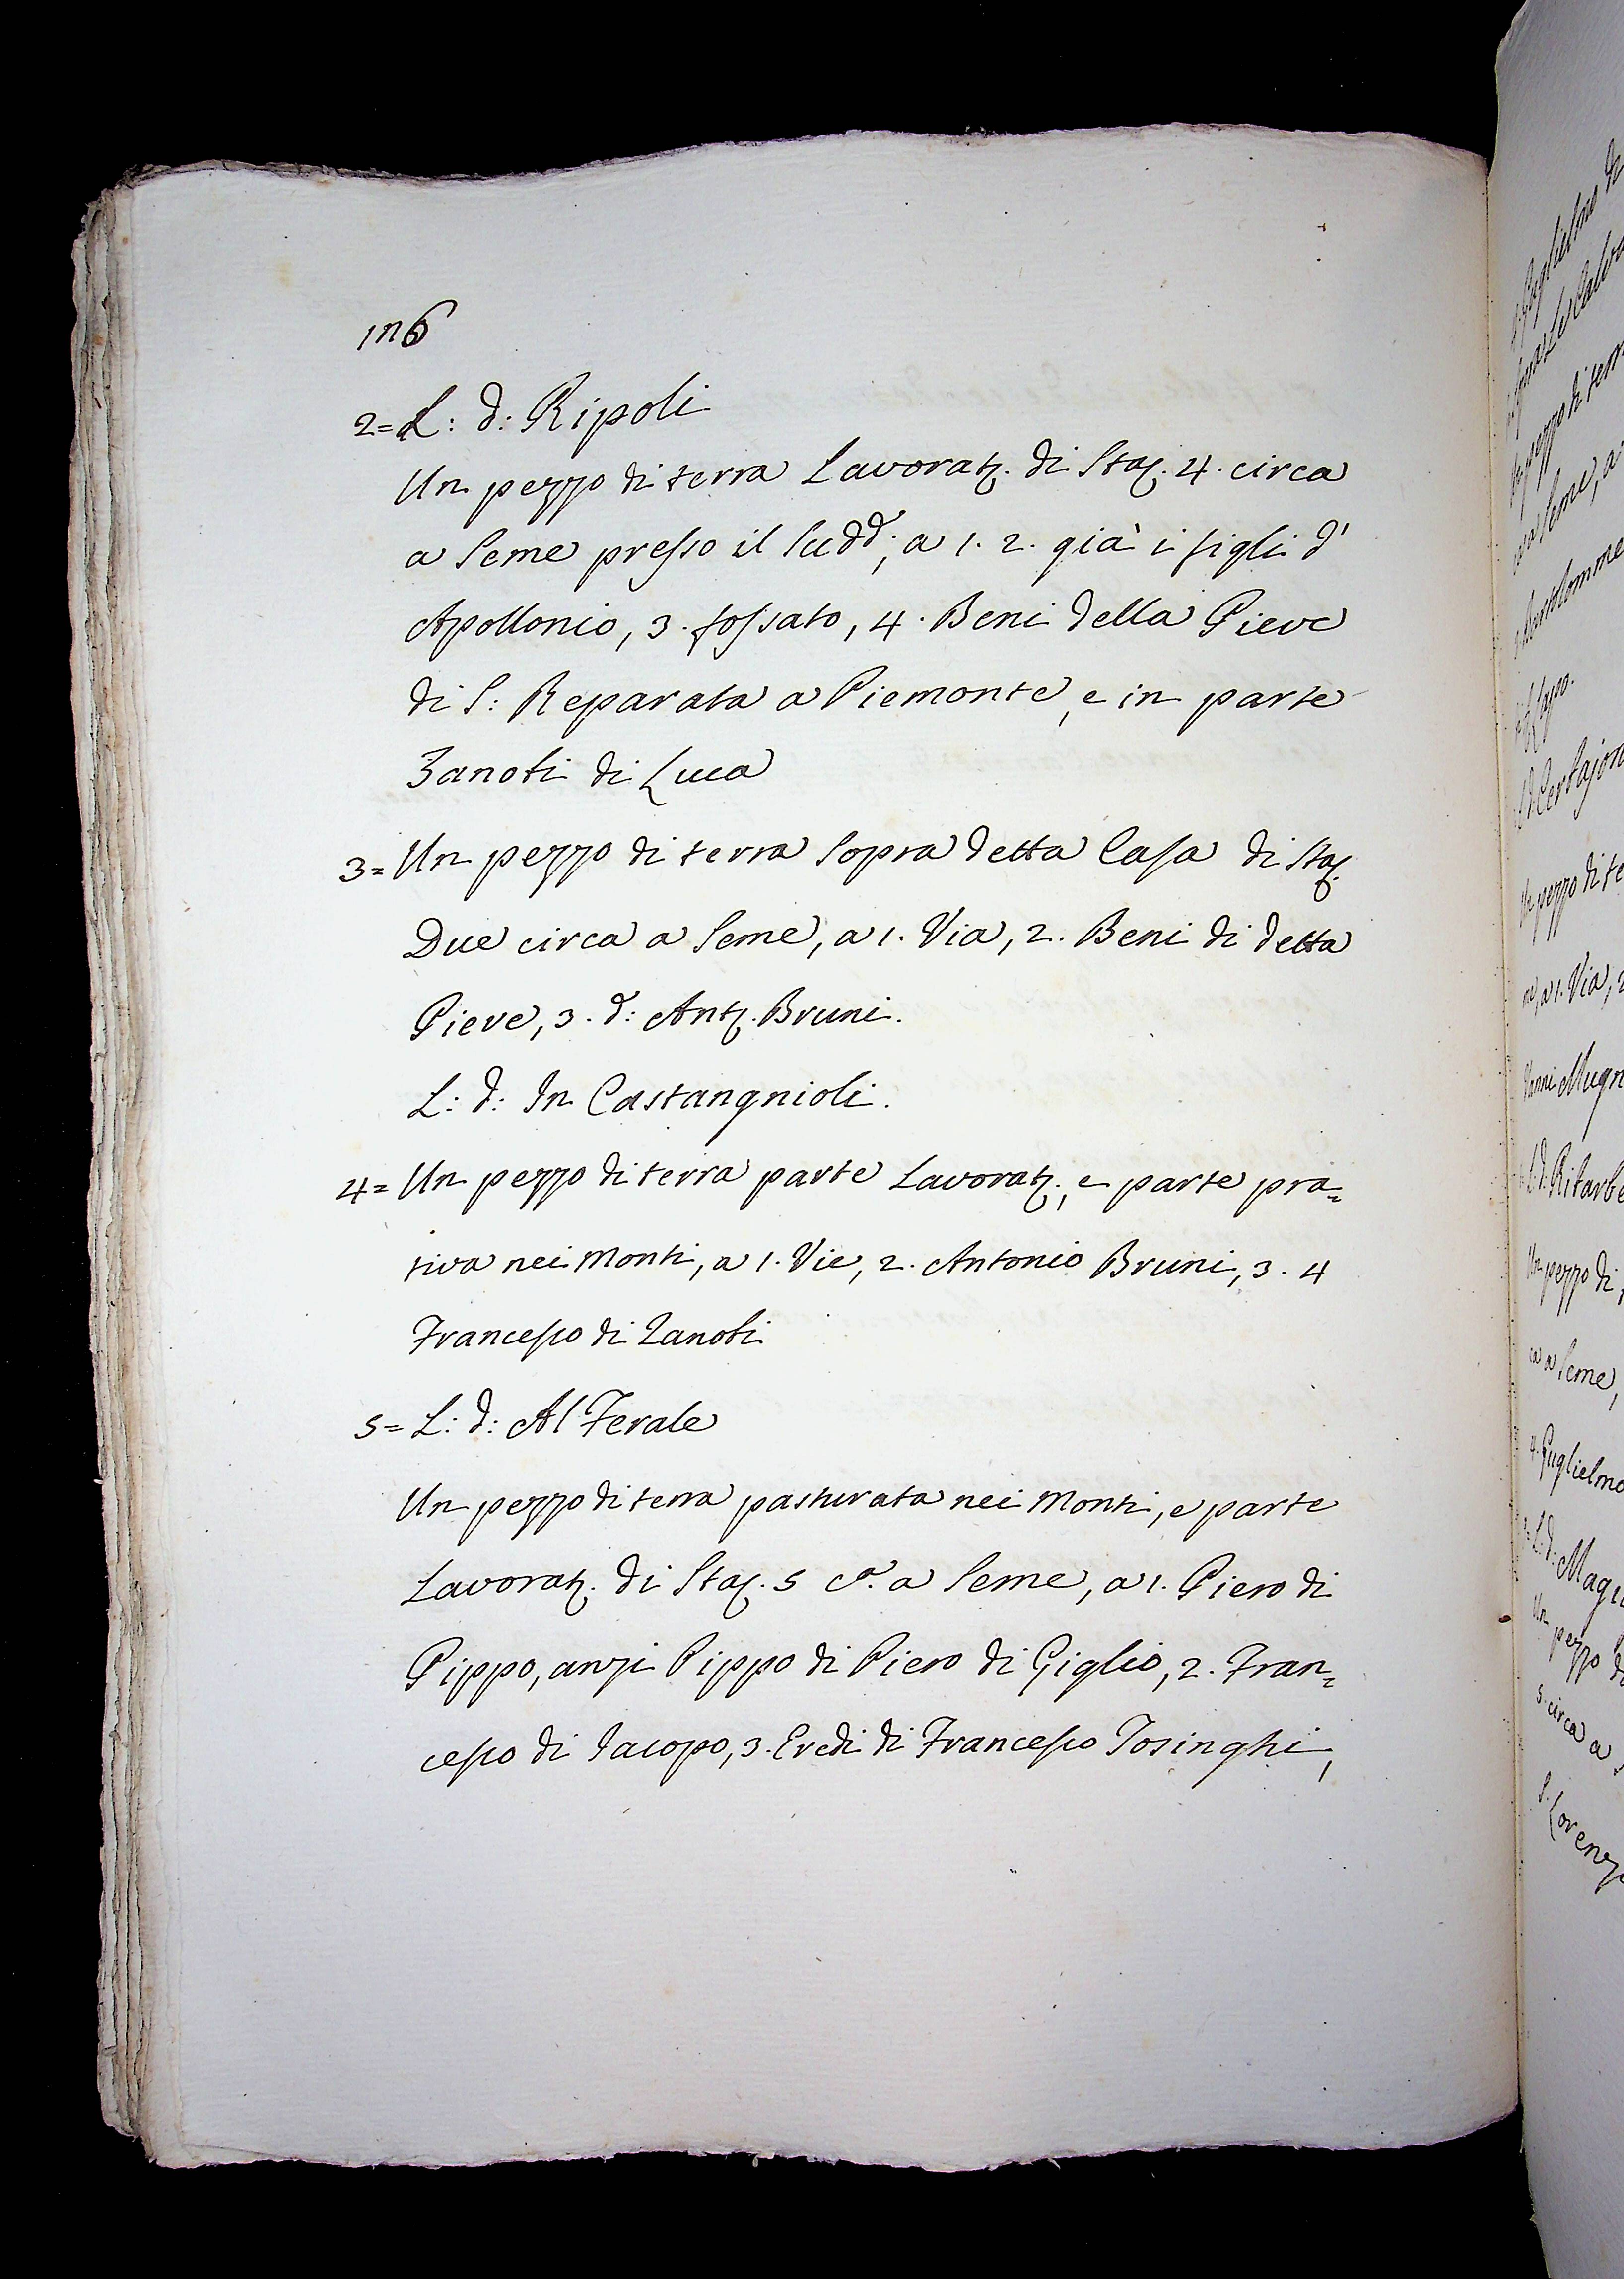 176
2= L: d: Ripoli
Un pezzo di terra Lavorat. di Sta. 4. circa
a Seme presso il Sudd:, a 1. 2. già i figli d'
Apollonio, 3. fossato, 4. Beni della Pieve
di S: Reparata a Piemonte, e in parte
Zanobi di Luca
3= Un pezzo di terra Sopra detta Casa di Sta.
Due circa a Seme, a 1. Via, 2. Beni di detta
Pieve, 3. d: Ant. Bruni.
L: d: In Castangnioli.
4= Un pezzo di terra parte Lavorat., e parte pra=
tiva nei Monti, a 1. Vie, 2. Antonio Bruni, 3. 4
Francesco di Zanobi
5= L: d: Al Ferale
Un pezzo di terra pasturata nei Monti, e parte
Lavorat. di Sta. 5 ca. a Seme, a 1. Piero di
Pippo, anzi Pippo di Piero di Giglio, 2. Fran=
cesco di Iacopo, 3. Eredi di Francesco Tosinghi,
Guglielmo di
pezzo di terra
a Seme, a
Bartolomme
Lapo.
Certajon
Un pezzo di te
me, a 1. Via, 2
Vanni Mugn
L: d: Ritarbe
Un pezzo di
ca a Seme,
4. Guglielmo
L: d: Magi
Un pezzo di
5. circa a
S. Lorenzo